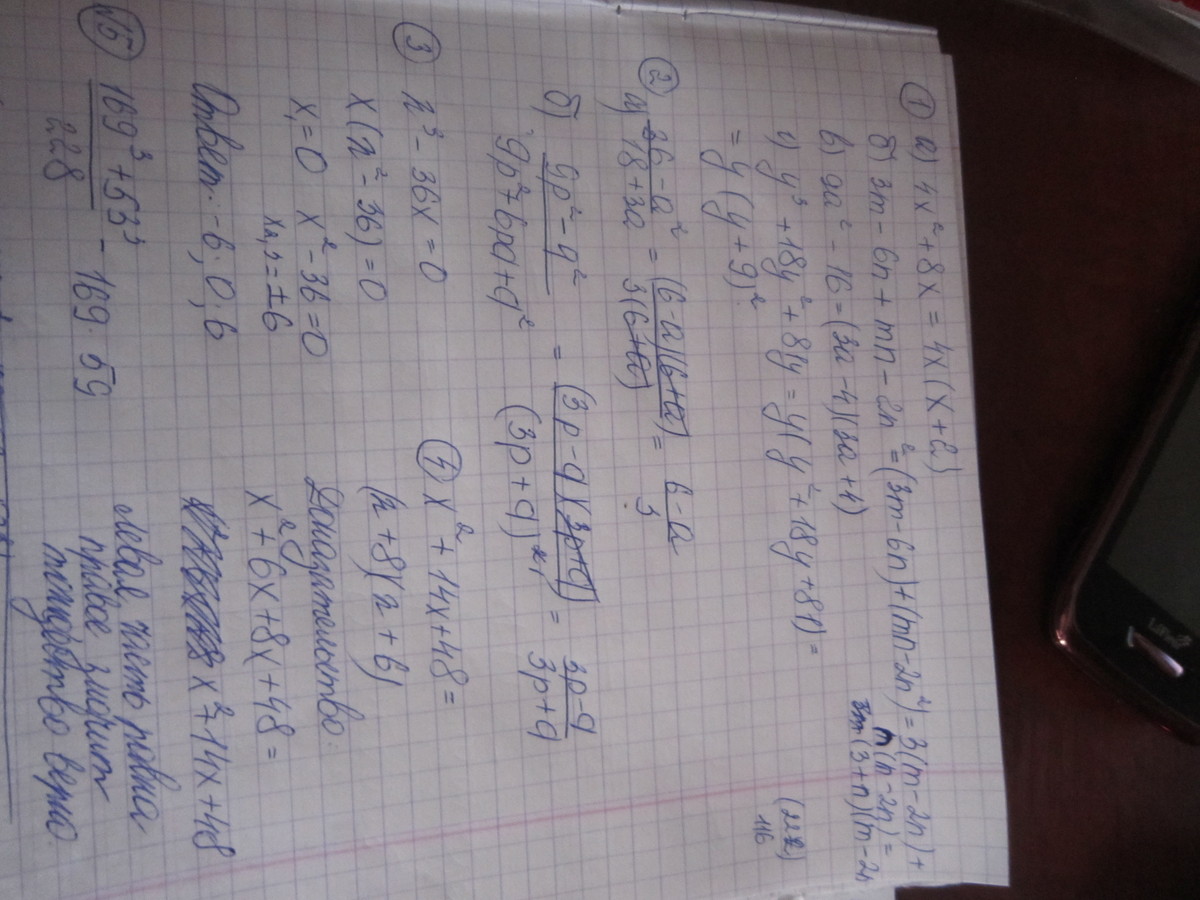 ① а) 4x² + 8x = 4x (x + 2)
б) 3m - 6n + mn - 2n² = (3m - 6n) + (mn - 2n²) = 3(m - 2n) +
n (m - 2n) =
(3 + n)(m - 2n
в) 9a² - 16 = (3a - 4)(3a + 4)
г) y³ + 18y² + 81y = y (y² + 18y + 81) =
= y (y + 9)²
116
② а) 36 - a² / 18 + 3a = (6 - a)(6 + a) / 3(6 + a) = 6 - a / 3
б) 9p² - q² / 9p² + 6pq + q² = (3p - q)(3p + q) / (3p + q)² = 3p - q / 3p + q
③ x³ - 36x = 0
x (x² - 36) = 0
x₁ = 0 x² - 36 = 0
x₂,₃ = ±6
Ответ: -6; 0; 6
④ x² + 14x + 48 =
(x + 8)(x + 6)
Доказательство:
x² + 6x + 8x + 48 =
x² + 14x + 48
Левая часть равна
правой значит
тождество верно.
№5 169³ + 59³ / 228 - 169 · 59